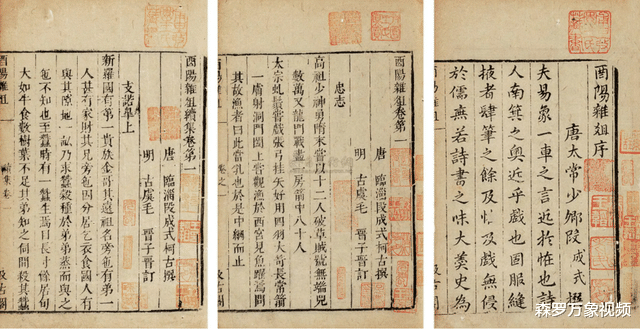 酉陽雜俎序
唐太常少卿段成式撰
夫易象一車之言近於怪也詩
人南箕之奥近乎戲也固服縫
掖者肆筆之餘及怪及戲無侵
於儒無若詩書之味大羹史為
酉陽雜俎
酉陽雜俎卷第一
唐 臨淄段成式柯古撰
明 古虞毛 晉子晉訂
忠志
高祖少神勇隋末嘗以十二人破草賊號無端兒
數萬又龍門戰盡一房箭中八十人
太宗虬鬚嘗戲張弓挂矢好用四羽大笴長常箭
一膚射洞門闔上嘗觀漁於西宮見魚躍焉問
其故漁者曰此當乳也於是中網而止
酉陽雜俎 卷之一 汲古閣
酉陽雜俎續集卷第一
唐 臨淄段成式柯古撰
明 古虞毛 晉子晉訂
支諾皐上
新羅國有第一貴族金哥其遠祖名旁㐌有弟一
人甚有家財其兄旁㐌因分居乞衣食國人有
與其隙地一畝乃求蠶穀種於弟弟蒸而與之
㐌不知也至蠶時有一蠶生焉目長寸餘居旬
大如牛食數樹葉不足其弟知之伺間殺其蠶
酉陽雜俎 續集卷一 汲古閣
森罗万象视频